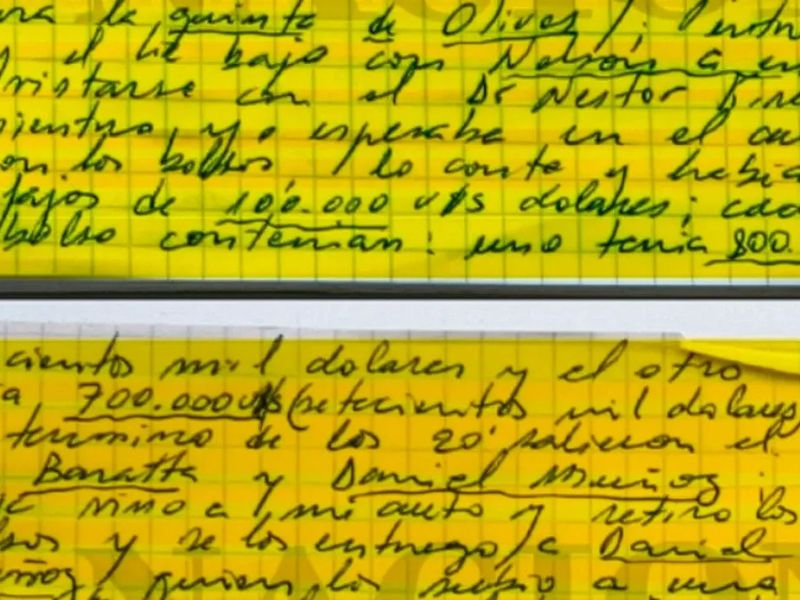 la quinta de Olivos/;
el Lic bajo con Nelson G en
con el Dr Nestor
y yo esperaba en el
los bolsos / lo conte y habia
fajos de 100.000 u$s dolares; cad
bolso contenian: uno tenia 800.
cientos mil dolares y el otro
a 700.000 u$s (setecientos mil dolares
termino de los 20' salieron el
Baratta y Daniel Muñoz
vino a mi auto y retiro los
sos y se los entrego/a Daniel
uñoz quien los subio a una
NACION